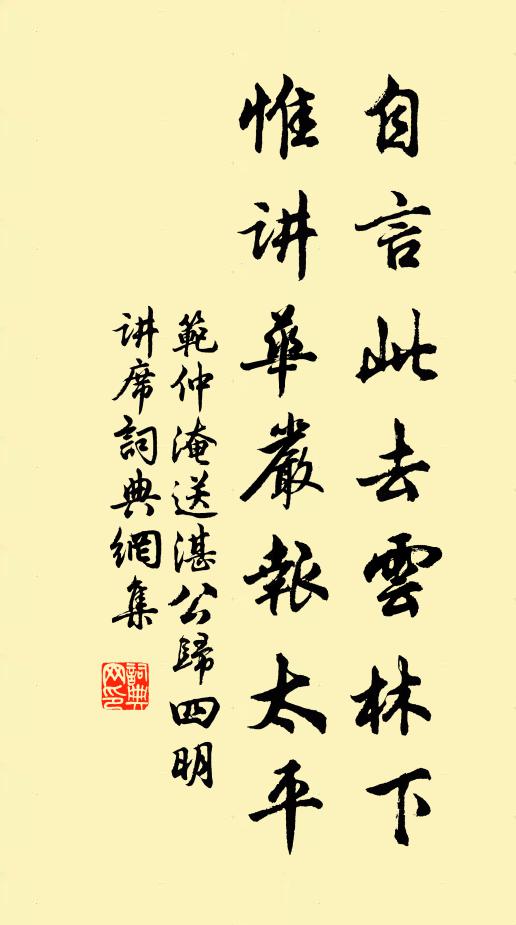 自言此去雲林下
惟讲華嚴報太平
範仲淹送湛公歸四明
讲席詞典網集
詞典網印